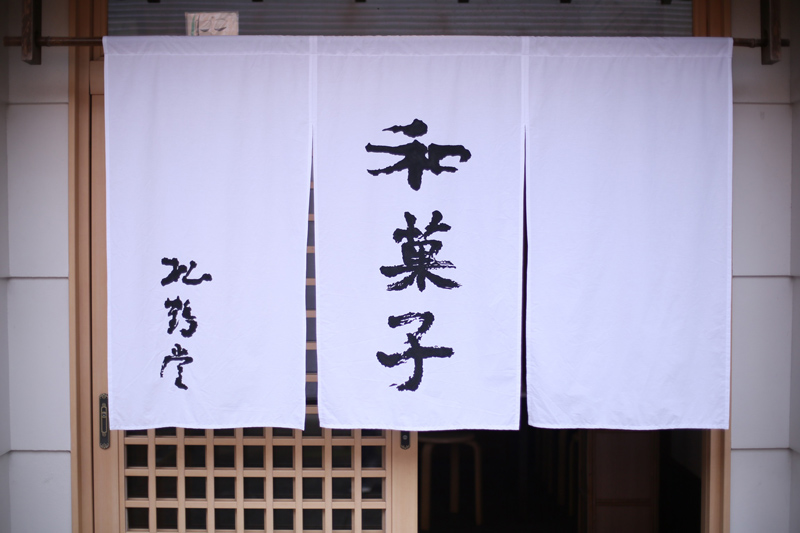 和菓子
鶴堂